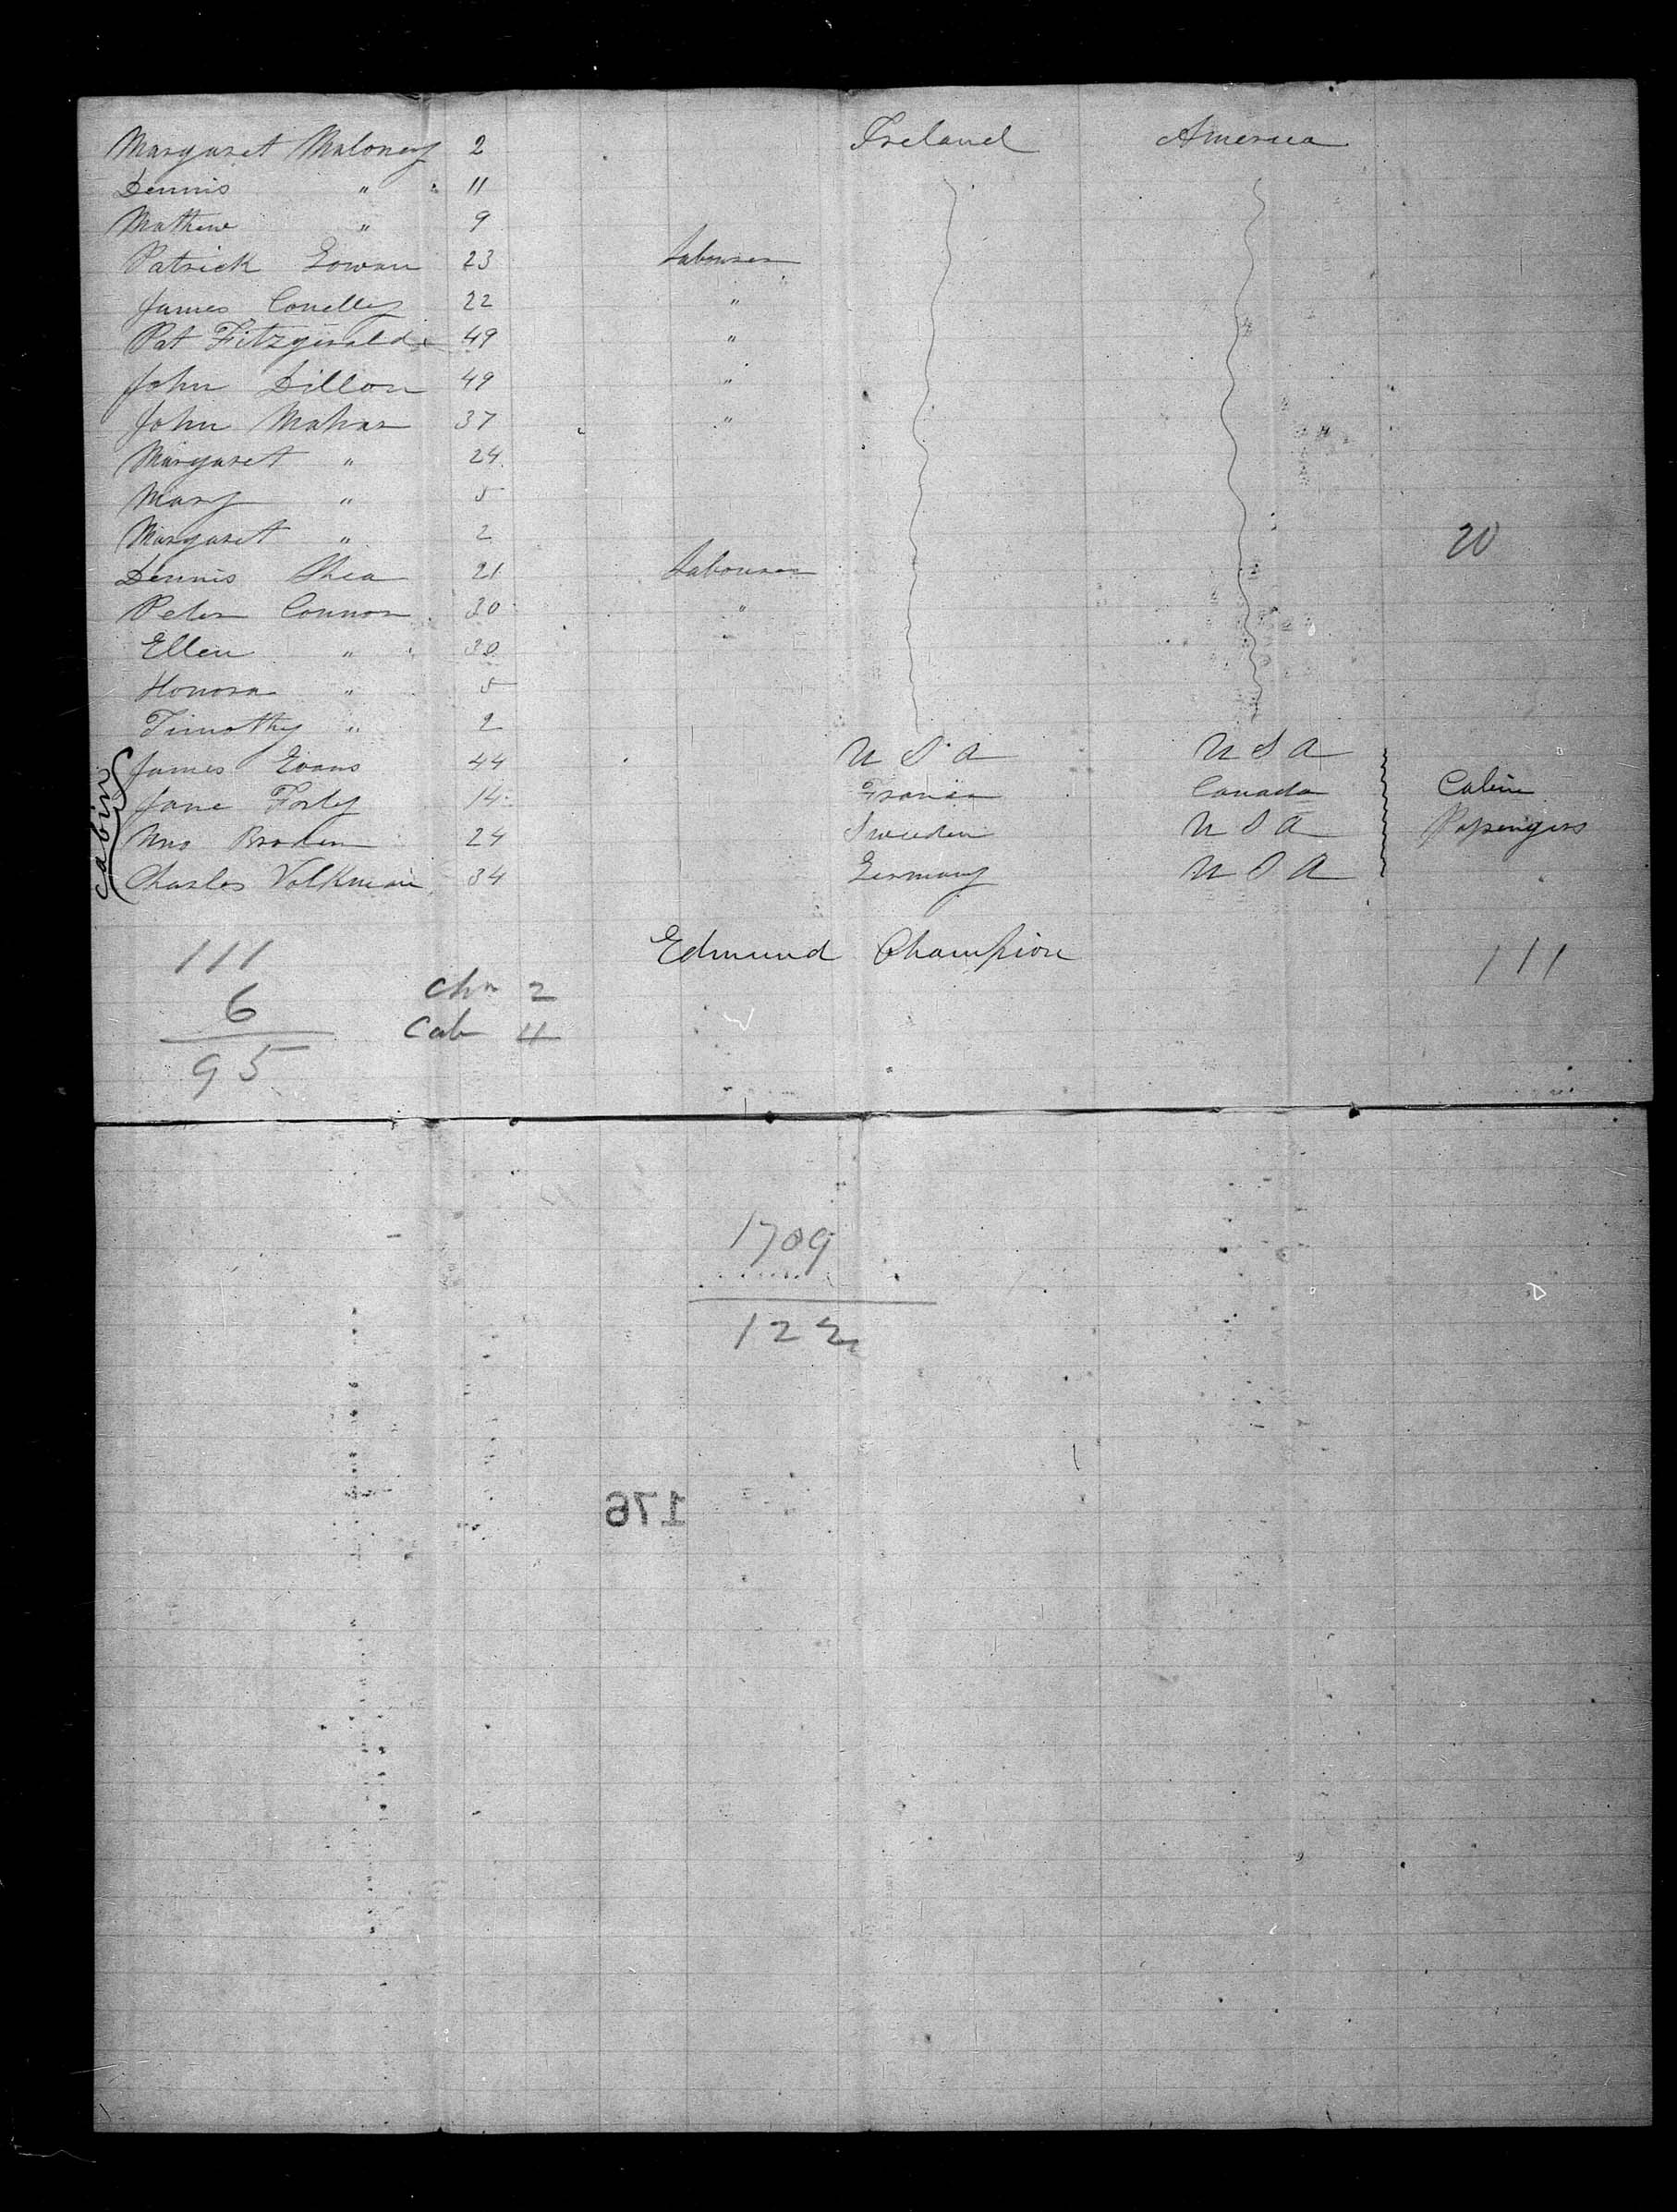 Margaret Maloney 2 Ireland America
Dennis " 11
Mathew " 9
Patrick Gowan 23 Labourer
James Conelly 22 "
Pat Fitzgirald 49 "
John Dillon 49 "
John Mahar 37 "
Margaret " 24
Mary " 5
Margaret " 2 20
Dennis Shea 21 Labourer
Peter Connor 30 "
Ellen " 30
Honora " 5
Timothy " 2
James Evans 44 U S A U S A
Jane Forty 14 France Canada Cabin
Mrs Broden 24 Sweeden U S A Passengers
Charles Volkman 34 Germany U S A
Cabin
Edmund Champion
111 111
6 Chn 2
Cab 11
95
1709
122
176